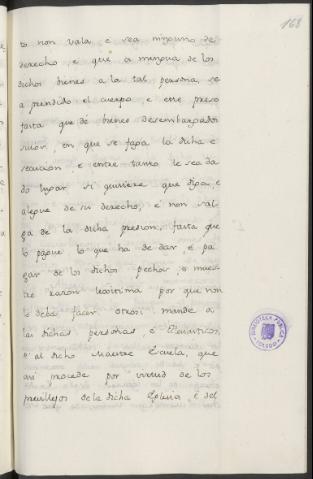 168
to non vala, e sea ninguno de
derecho, e que a mingua de los
dichos bienes a la tal persona, se
a prendido el cuerpo, e este preso
fasta que dé bienes desembargados
suios, en que se faga la dicha e
secucion, e entre tanto le sea da
do lugar si quisiere que diga, e
alegue de su derecho, é non sal
ga de la dicha presion, fasta que
lo pague lo que ha de dar é pa
gar de los dichos pechos, o mues
tre razon lexitima por que non
lo deba facer, otrosi mando a
las dichas personas, é
é al dicho Maestre Escuela, que
asi procede por virtud de los
previllejos de la dicha Iglesia, é del
BIBLIOTECA PUBLICA
TOLEDO